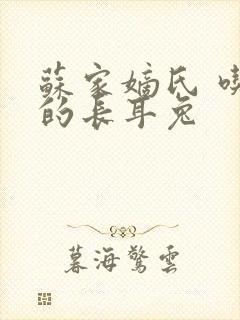 蘇家嫡氏
的長耳兔
暮海驚雲